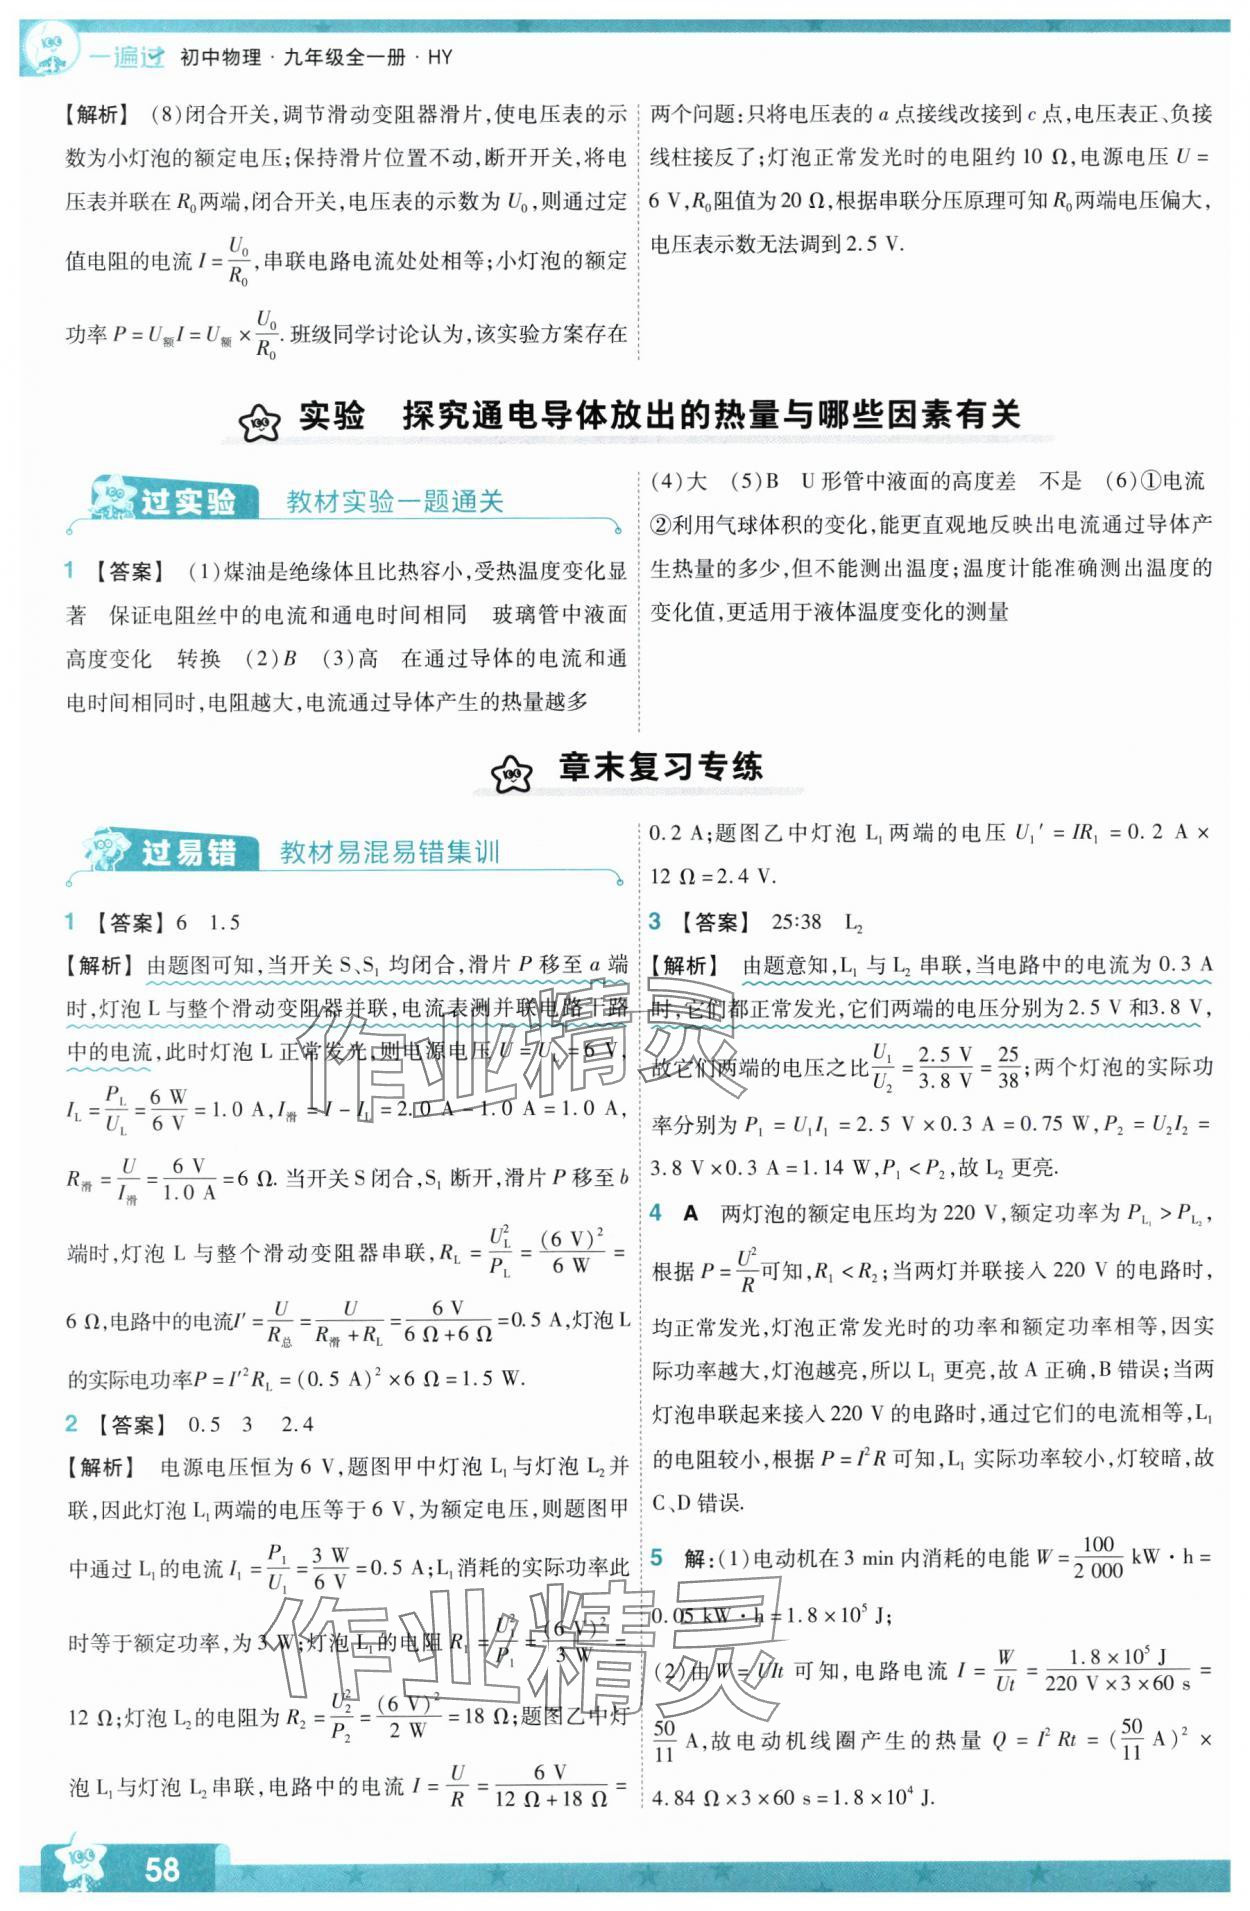 一遍过 初中物理·九年级全一册·HY
【解析】 (8)闭合开关,调节滑动变阻器滑片,使电压表的示
数为小灯泡的额定电压;保持滑片位置不动,断开开关,将电
压表并联在 R₀两端,闭合开关,电压表的示数为 U₀,则通过定
值电阻的电流 I=U₀/R₀,串联电路电流处处相等;小灯泡的额定
功率 P=U额I=U额×U₀/R₀. 班级同学讨论认为,该实验方案存在
两个问题:只将电压表的 a 点接线改接到 c 点,电压表正、负接
线柱接反了;灯泡正常发光时的电阻约 10 Ω,电源电压 U=
6 V,R₀阻值为 20 Ω,根据串联分压原理可知 R₀两端电压偏大,
电压表示数无法调到 2.5 V.
实验 探究通电导体放出的热量与哪些因素有关
过实验 教材实验一题通关
1 【答案】 (1)煤油是绝缘体且比热容小,受热温度变化显
著 保证电阻丝中的电流和通电时间相同 玻璃管中液面
高度变化 转换 (2)B (3)高 在通过导体的电流和通
电时间相同时,电阻越大,电流通过导体产生的热量越多
(4)大 (5)B U 形管中液面的高度差 不是 (6)①电流
②利用气球体积的变化,能更直观地反映出电流通过导体产
生热量的多少,但不能测出温度;温度计能准确测出温度的
变化值,更适用于液体温度变化的测量
章末复习专练
过易错 教材易混易错集训
1 【答案】6 1.5
【解析】 由题图可知,当开关 S、S₁ 均闭合,滑片 P 移至 a 端
时,灯泡 L 与整个滑动变阻器并联,电流表测并联电路干路
中的电流,此时灯泡 L 正常发光,则电源电压 U=U_L=6 V,
I_L=P_L/U_L=6 W/6 V=1.0 A,I滑=I-I_L=2.0 A-1.0 A=1.0 A,
R滑=U/I滑=6 V/1.0 A=6 Ω. 当开关 S 闭合,S₁ 断开,滑片 P 移至 b
端时,灯泡 L 与整个滑动变阻器串联,R_L=U_L²/P_L=(6 V)²/6 W=
6 Ω,电路中的电流I′=U/R总=U/(R滑+R_L)=6 V/(6 Ω+6 Ω)=0.5 A,灯泡 L
的实际电功率P=I′²R_L=(0.5 A)²×6 Ω=1.5 W.
2 【答案】 0.5 3 2.4
【解析】 电源电压恒为 6 V,题图甲中灯泡 L₁与灯泡 L₂并
联,因此灯泡 L₁两端的电压等于 6 V,为额定电压,则题图甲
中通过 L₁的电流 I₁=P₁/U₁=3 W/6 V=0.5 A;L₁消耗的实际功率此
时等于额定功率,为 3 W;灯泡 L₁的电阻 R₁=U₁²/P₁=(6 V)²/3 W=
12 Ω;灯泡 L₂的电阻为 R₂=U₂²/P₂=(6 V)²/2 W=18 Ω;题图乙中灯
泡 L₁与灯泡 L₂串联,电路中的电流 I=U/R=6 V/(12 Ω+18 Ω)=
0.2 A;题图乙中灯泡 L₁两端的电压 U₁′=IR₁=0.2 A×
12 Ω=2.4 V.
3 【答案】 25:38 L₂
【解析】 由题意知,L₁ 与 L₂ 串联,当电路中的电流为 0.3 A
时,它们都正常发光,它们两端的电压分别为 2.5 V 和3.8 V,
故它们两端的电压之比U₁/U₂=2.5 V/3.8 V=25/38;两个灯泡的实际功
率分别为 P₁=U₁I₁=2.5 V×0.3 A=0.75 W,P₂=U₂I₂=
3.8 V×0.3 A=1.14 W,P₁<P₂,故 L₂ 更亮.
4 A 两灯泡的额定电压均为 220 V,额定功率为 P_L₁>P_L₂,
根据 P=U²/R可知,R₁<R₂;当两灯并联接入 220 V 的电路时,
均正常发光,灯泡正常发光时的功率和额定功率相等,因实
际功率越大,灯泡越亮,所以 L₁ 更亮,故 A 正确,B 错误;当两
灯泡串联起来接入 220 V 的电路时,通过它们的电流相等,L₁
的电阻较小,根据 P=I²R 可知,L₁ 实际功率较小,灯较暗,故
C、D 错误.
5 解:(1)电动机在 3 min 内消耗的电能 W=100/2 000 kW·h=
0.05 kW·h=1.8×10⁵ J;
(2)由 W=UIt 可知,电路电流 I=W/Ut=1.8×10⁵ J/(220 V×3×60 s)=
50/11 A,故电动机线圈产生的热量 Q=I²Rt=(50/11 A)²×
4.84 Ω×3×60 s=1.8×10⁴ J.
作业精灵
作业精灵
58